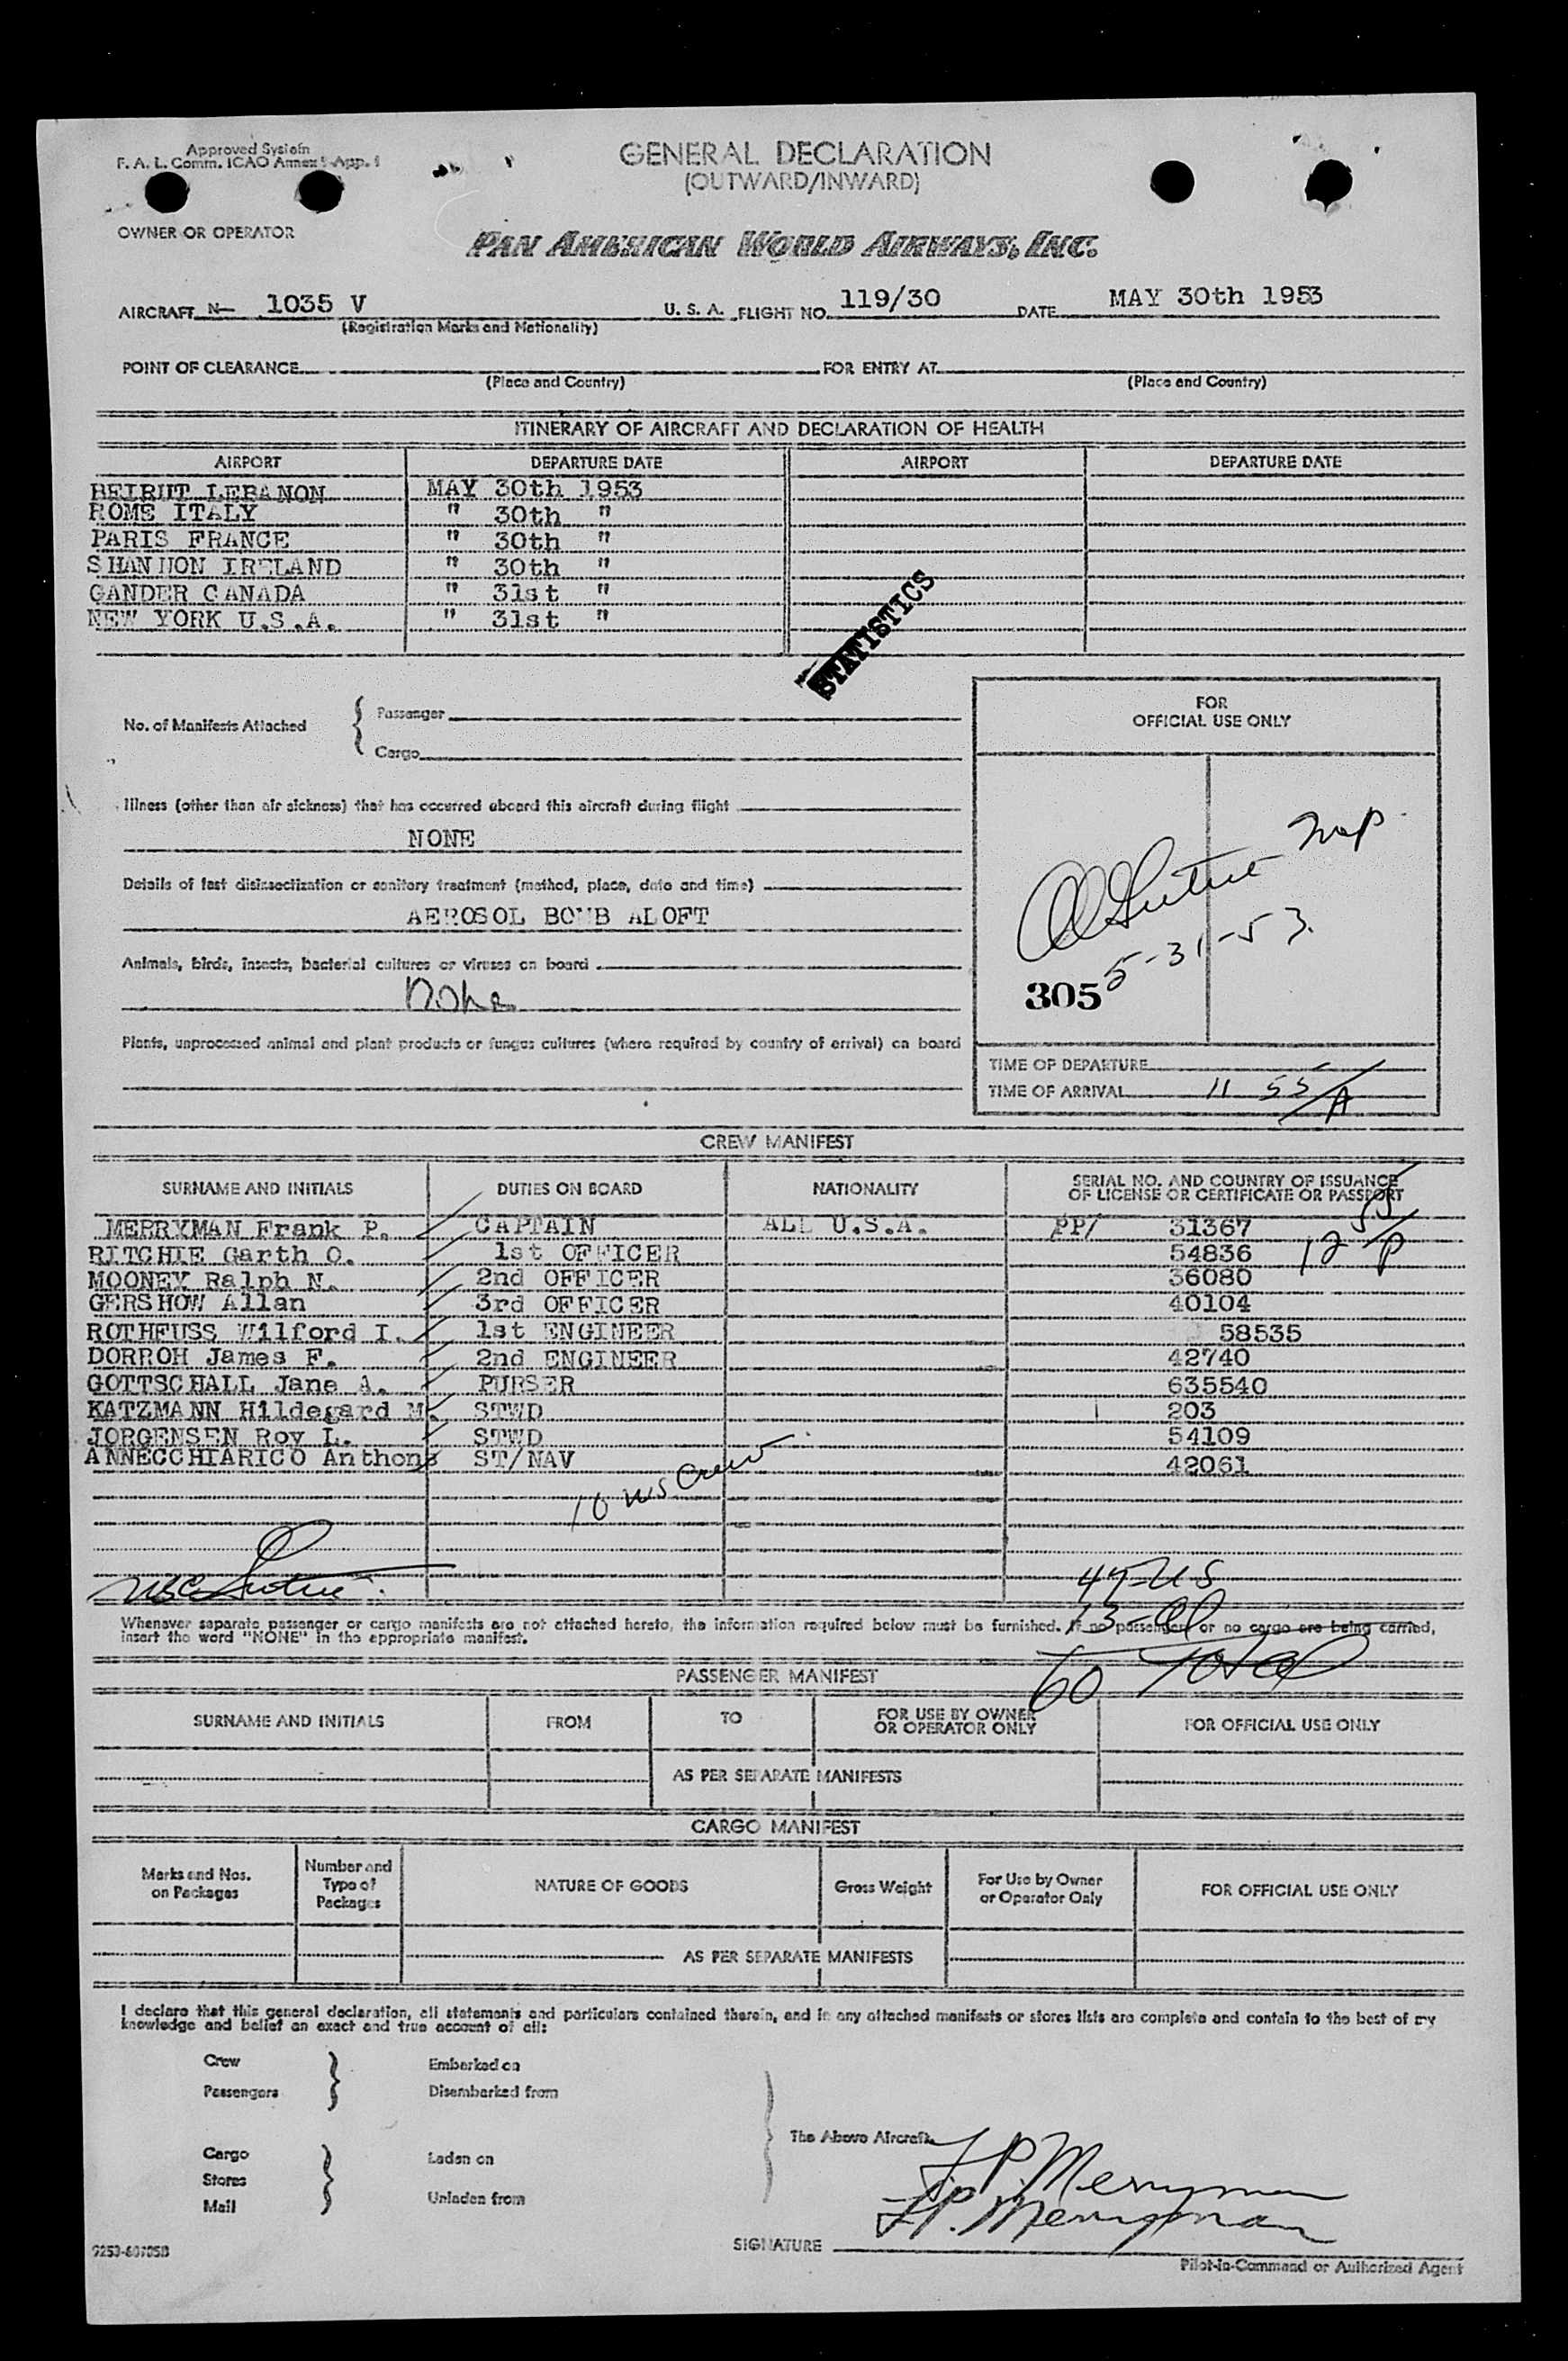 Approved System
F. A. L. Comm. ICAO Annex 9 App. 1
GENERAL DECLARATION
(OUTWARD/INWARD)
OWNER OR OPERATOR
PAN AMERICAN WORLD AIRWAYS, INC.
AIRCRAFT N— 1035 V U. S. A. FLIGHT NO. 119/30 DATE MAY 30th 1953
(Registration Marks and Nationality)
POINT OF CLEARANCE FOR ENTRY AT
(Place and Country) (Place and Country)
ITINERARY OF AIRCRAFT AND DECLARATION OF HEALTH
AIRPORT DEPARTURE DATE AIRPORT DEPARTURE DATE
BEIRUT LEBANON MAY 30th 1953
ROME ITALY " 30th "
PARIS FRANCE " 30th "
SHANNON IRELAND " 30th "
GANDER CANADA " 31st "
NEW YORK U.S.A. " 31st "
STATISTICS
No. of Manifests Attached { Passenger
Cargo
FOR
OFFICIAL USE ONLY
Illness (other than air sickness) that has occurred aboard this aircraft during flight
NONE
Details of last disinsectization or sanitary treatment (method, place, date and time)
AEROSOL BOMB ALOFT
Animals, birds, insects, bacterial cultures or viruses on board
None
5-31-53
305
Plants, unprocessed animal and plant products or fungus cultures (where required by country of arrival) on board
TIME OF DEPARTURE
TIME OF ARRIVAL 11 55/A
CREW MANIFEST
SURNAME AND INITIALS DUTIES ON BOARD NATIONALITY SERIAL NO. AND COUNTRY OF ISSUANCE
OF LICENSE OR CERTIFICATE OR PASSPORT
MERRYMAN Frank P. CAPTAIN ALL U.S.A. PP/ 31367
RITCHIE Garth O. 1st OFFICER 54836
12 55/P
MOONEY Ralph N. 2nd OFFICER 36080
GERSHOW Allan 3rd OFFICER 40104
ROTHFUSS Wilford I. 1st ENGINEER 58535
DORROH James F. 2nd ENGINEER 42740
GOTTSCHALL Jane A. PURSER 635540
KATZMANN Hildegard M. STWD 203
JORGENSEN Roy L. STWD 54109
ANNECCHIARICO Anthony ST/NAV 42061
10 US Crew
47-US
13-Al
60 Total
Whenever separate passenger or cargo manifests are not attached hereto, the information required below must be furnished. If no passengers or no cargo are being carried,
insert the word "NONE" in the appropriate manifest.
PASSENGER MANIFEST
SURNAME AND INITIALS FROM TO FOR USE BY OWNER
OR OPERATOR ONLY FOR OFFICIAL USE ONLY
AS PER SEPARATE MANIFESTS
CARGO MANIFEST
Marks and Nos.
on Packages Number and
Type of
Packages NATURE OF GOODS Gross Weight For Use by Owner
or Operator Only FOR OFFICIAL USE ONLY
AS PER SEPARATE MANIFESTS
I declare that this general declaration, all statements and particulars contained therein, and in any attached manifests or stores lists are complete and contain to the best of my
knowledge and belief an exact and true account of all:
Crew Embarked on
Passengers Disembarked from
The Above Aircraft
Cargo Laden on
Stores
Mail Unladen from
F.P. Merryman
F.P. Merryman
SIGNATURE
9253-60705B
Pilot-in-Command or Authorized Agent